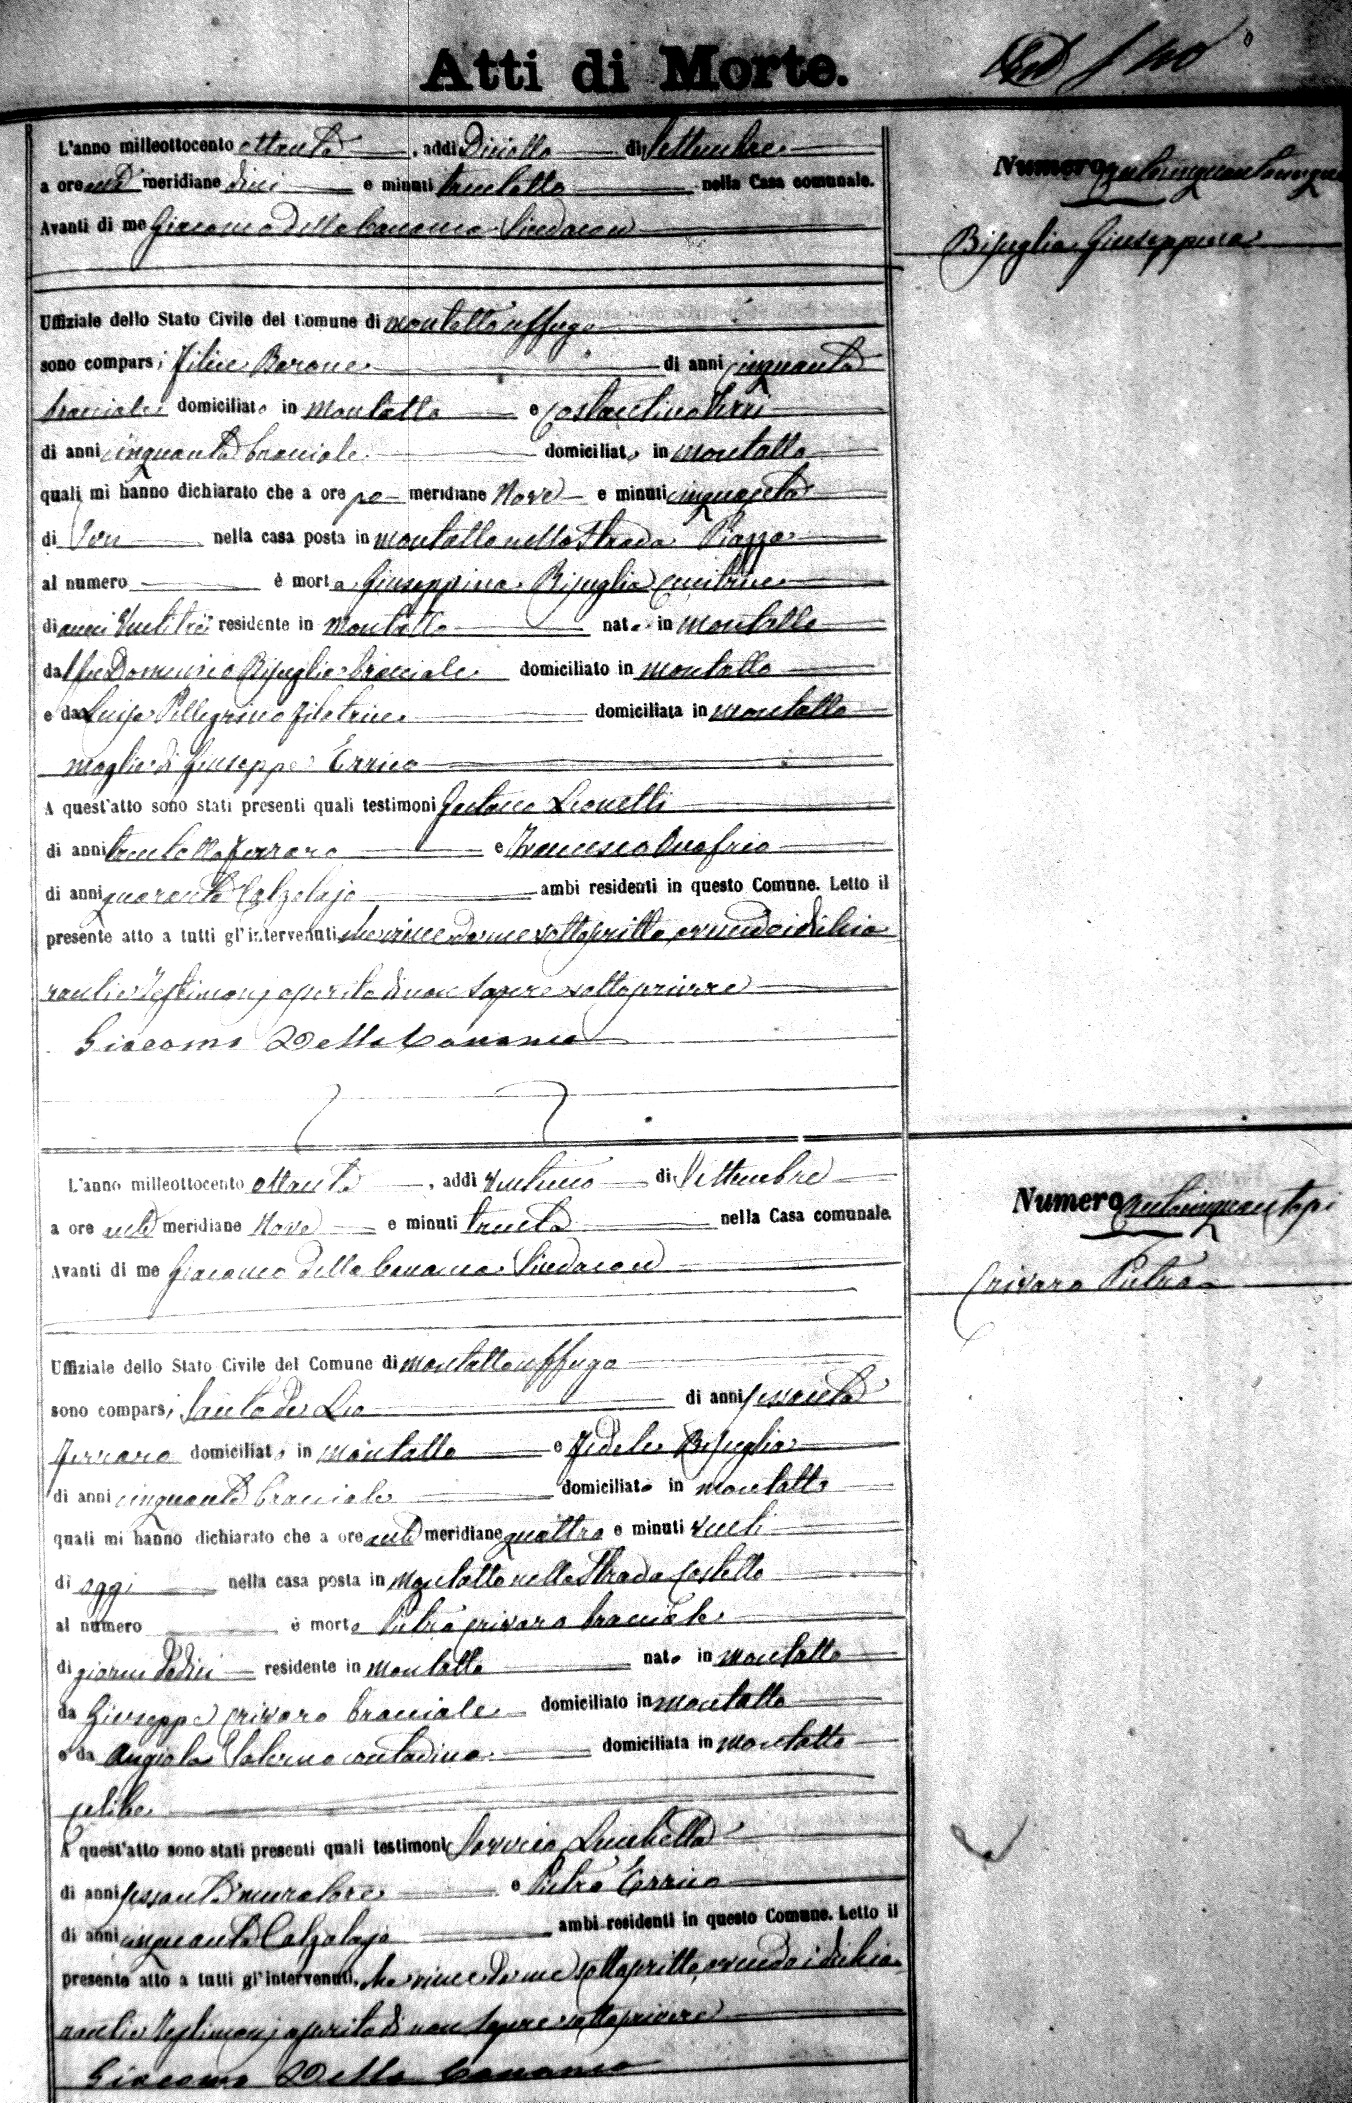 Atti di Morte.
L'anno milleottocento ottanta, addì Diciotto di Settembre
a ore anti meridiane dieci e minuti trentotto nella Casa comunale.
Avanti di me Giacomo Della Cananea Sindaco
Numero centocinquantacinque
Bisuglia Giuseppina
Uffiziale dello Stato Civile del Comune di Montaltouffugo
sono comparsi Felice Barone di anni cinquanta
bracciale domiciliato in Montalto e Costantino
di anni cinquanta bracciale domiciliato in Montalto
quali mi hanno dichiarato che a ore po meridiane Nove e minuti cinquanta
di Ieri nella casa posta in Montalto nella Strada Piazza
al numero è morta Giuseppina Bisuglia cucitrice
di anni Ventitre residente in Montalto nata in Montalto
dal fu Domenico Bisuglia bracciale domiciliato in Montalto
e da Luisa Pellegrino filatrice domiciliata in Montalto
moglie di Giuseppe Errico
A quest'atto sono stati presenti quali testimoni Gaetano Leonetti
di anni trentotto Ferraro e Francesco Onofrio
di anni quaranta Calzolajo ambi residenti in questo Comune. Letto il
presente atto a tutti gl'intervenuti, che viene da me sottoscritto, avendo i dichia
ranti e Testimonj asserito di non sapere sottoscrivere
Giacomo Della Cananea
L'anno milleottocento ottanta, addì Ventuno di Settembre
a ore anti meridiane Nove e minuti trenta nella Casa comunale.
Avanti di me Giacomo della Cananea Sindaco
Numero centocinquantasei
Crivaro Pietro
Uffiziale dello Stato Civile del Comune di Montaltouffugo
sono comparsi Santo De Leo di anni sessanta
Ferraro domiciliato in Montalto e Fedele Bisuglia
di anni cinquanta bracciale domiciliato in Montalto
quali mi hanno dichiarato che a ore anti meridiane quattro e minuti venti
di oggi nella casa posta in Montalto nella Strada Castello
al numero è morto Pietro Crivaro bracciale
di giorni residente in Montalto nato in Montalto
da Giuseppe Crivaro bracciale domiciliato in Montalto
e da Angiola Salerno contadina domiciliata in Montalto
celibe
A quest'atto sono stati presenti quali testimoni Saverio
di anni sessanta muratore e Pietro Errico
di anni cinquanta Calzolajo ambi residenti in questo Comune. Letto il
presente atto a tutti gl'intervenuti, che viene da me sottoscritto, avendo i dichia
ranti e Testimonj asserito di non sapere sottoscrivere
Giacomo Della Cananea